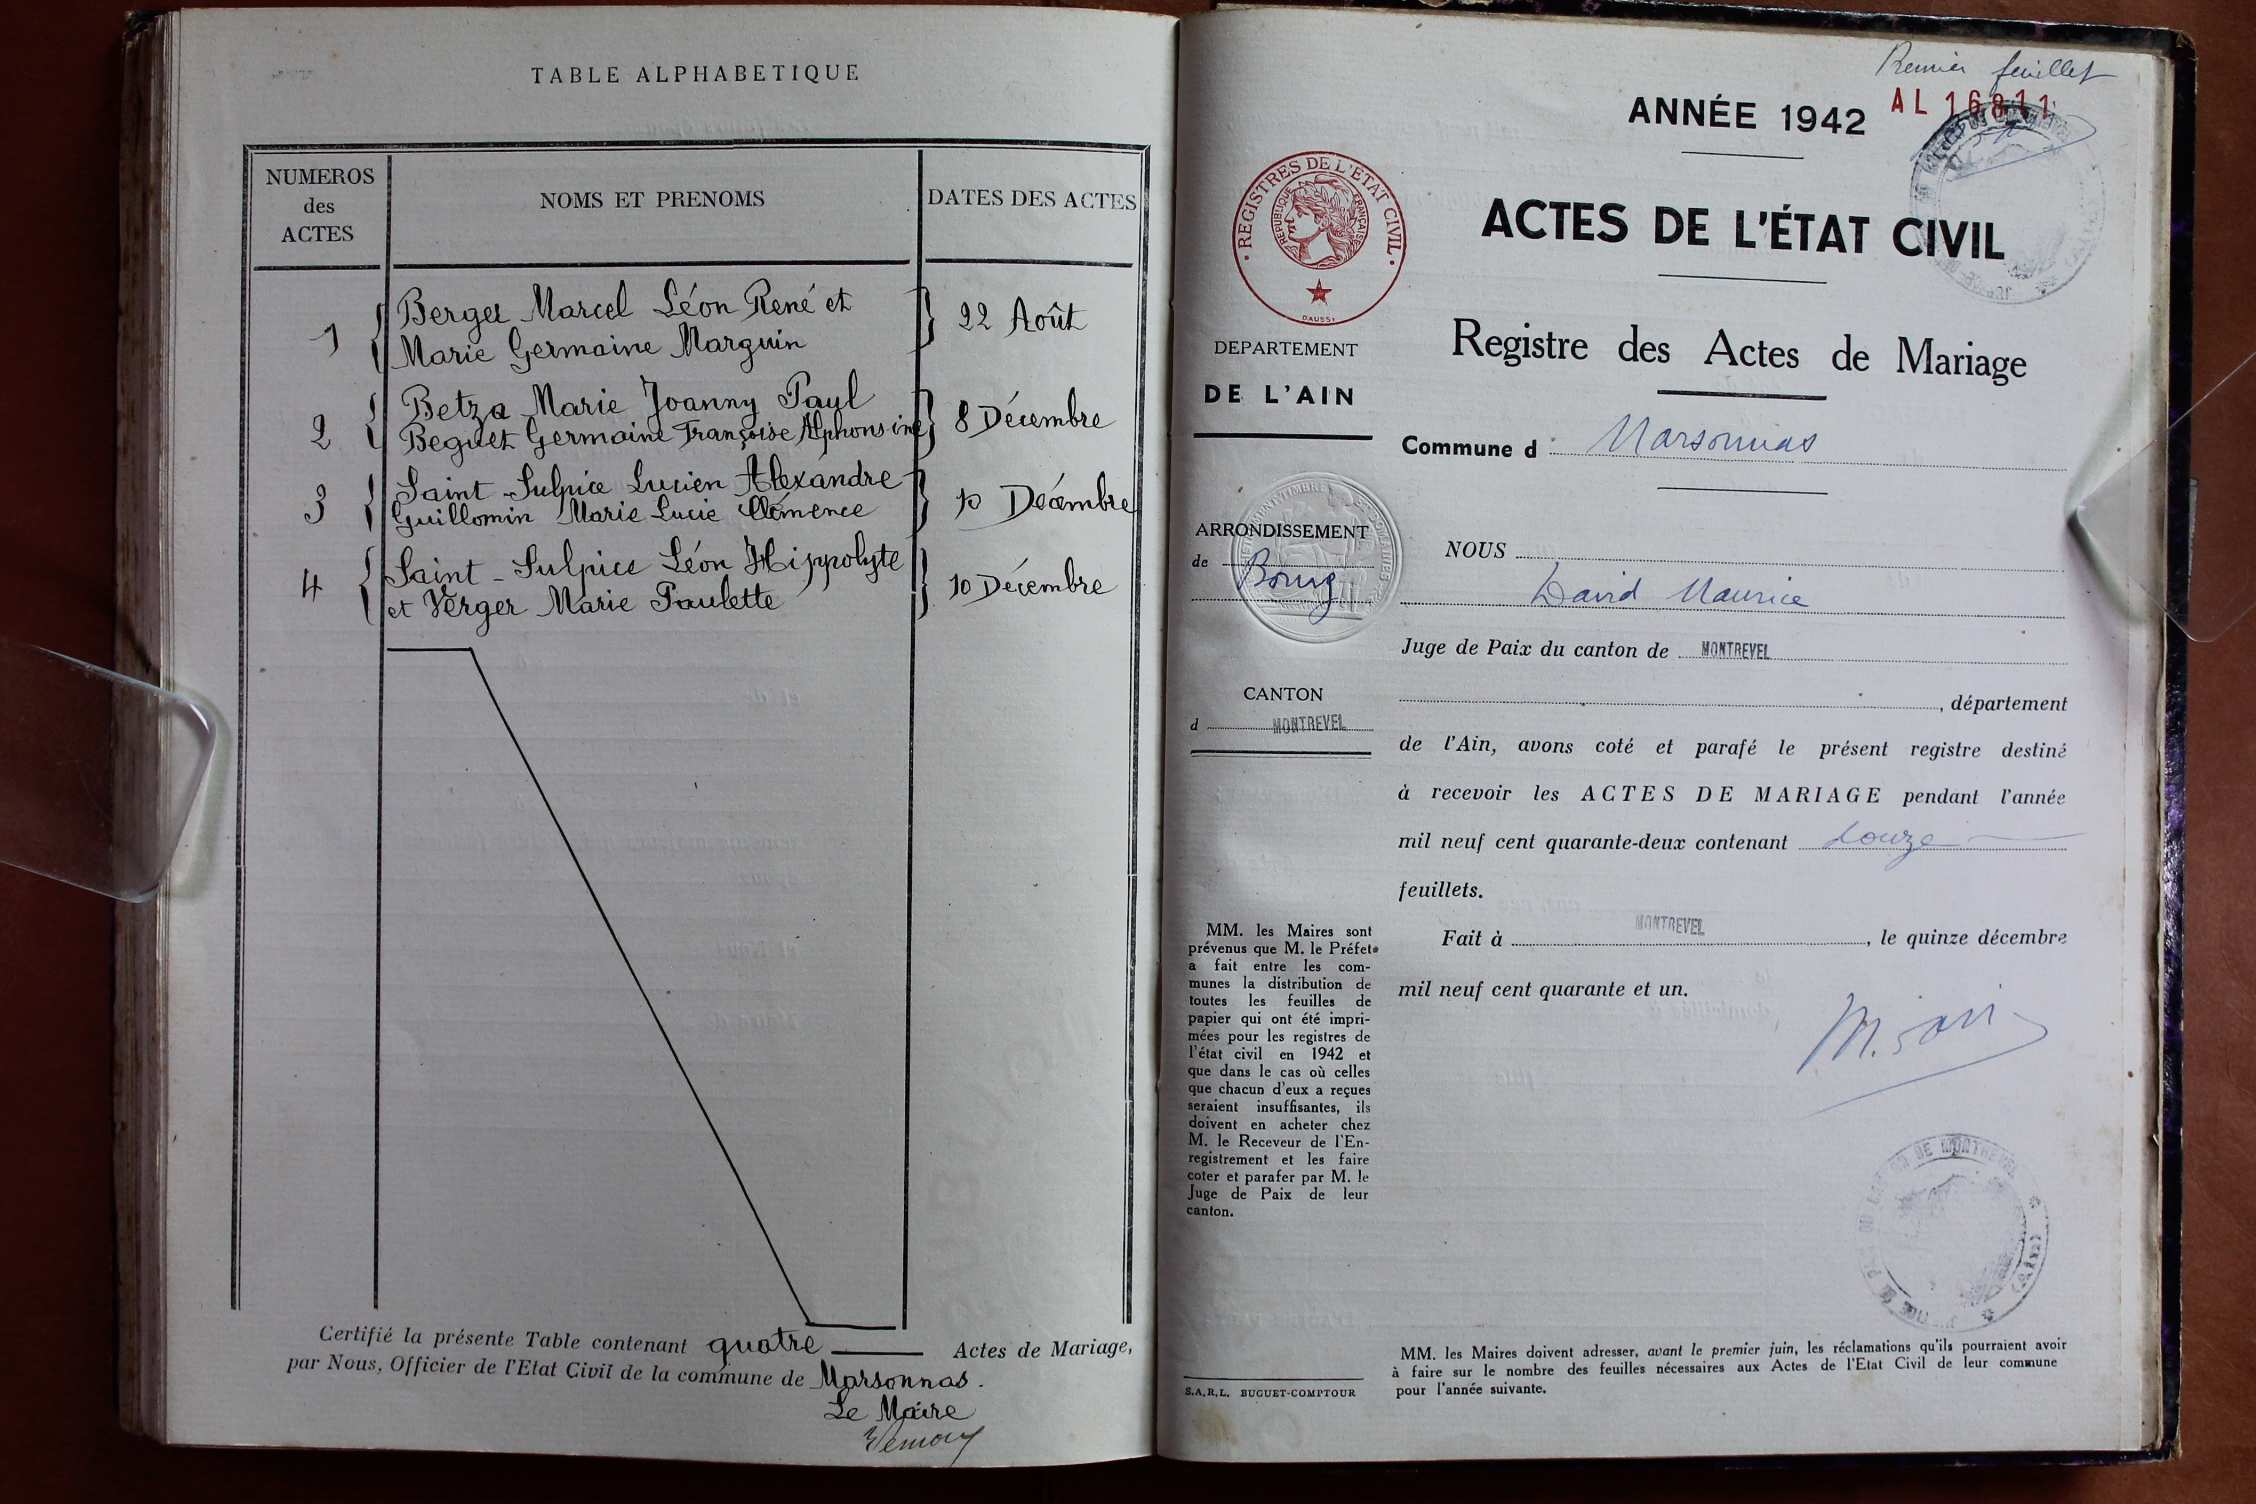 TABLE ALPHABETIQUE
NUMEROS
des
ACTES
NOMS ET PRENOMS
DATES DES ACTES
1
Berger Marcel Léon René et
Marie Germaine Marguin
22 Août
2
Betza Marie Joanny Paul
Beguet Germaine Françoise Alphonsine
8 Décembre
3
Saint-Sulpice Lucien Alexandre
Guillomin Marie Lucie Clémence
10 Décembre
4
Saint-Sulpice Léon Hippolyte
et Verger Marie Paulette
10 Décembre
Certifié la présente Table contenant quatre Actes de Mariage,
par Nous, Officier de l'Etat Civil de la commune de Marsonnas.
Le Maire
Premier feuillet
AL 16811
ANNÉE 1942
REGISTRES DE L'ETAT CIVIL
REPUBLIQUE FRANÇAISE
DAUSSY
ACTES DE L'ÉTAT CIVIL
Registre des Actes de Mariage
DEPARTEMENT
DE L'AIN
Commune d Marsonnas
ARRONDISSEMENT
de Bourg
CANTON
d MONTREVEL
NOUS
David Maurice
Juge de Paix du canton de MONTREVEL
, département
de l'Ain, avons coté et parafé le présent registre destiné
à recevoir les ACTES DE MARIAGE pendant l'année
mil neuf cent quarante-deux contenant douze
feuillets.
Fait à MONTREVEL, le quinze décembre
mil neuf cent quarante et un.
MM. les Maires sont
prévenus que M. le Préfet
a fait entre les com-
munes la distribution de
toutes les feuilles de
papier qui ont été impri-
mées pour les registres de
l'état civil en 1942 et
que dans le cas où celles
que chacun d'eux a reçues
seraient insuffisantes, ils
doivent en acheter chez
M. le Receveur de l'En-
registrement et les faire
coter et parafer par M. le
Juge de Paix de leur
canton.
S.A.R.L. BUGUET-COMPTOUR
MM. les Maires doivent adresser, avant le premier juin, les réclamations qu'ils pourraient avoir
à faire sur le nombre des feuilles nécessaires aux Actes de l'Etat Civil de leur commune
pour l'année suivante.